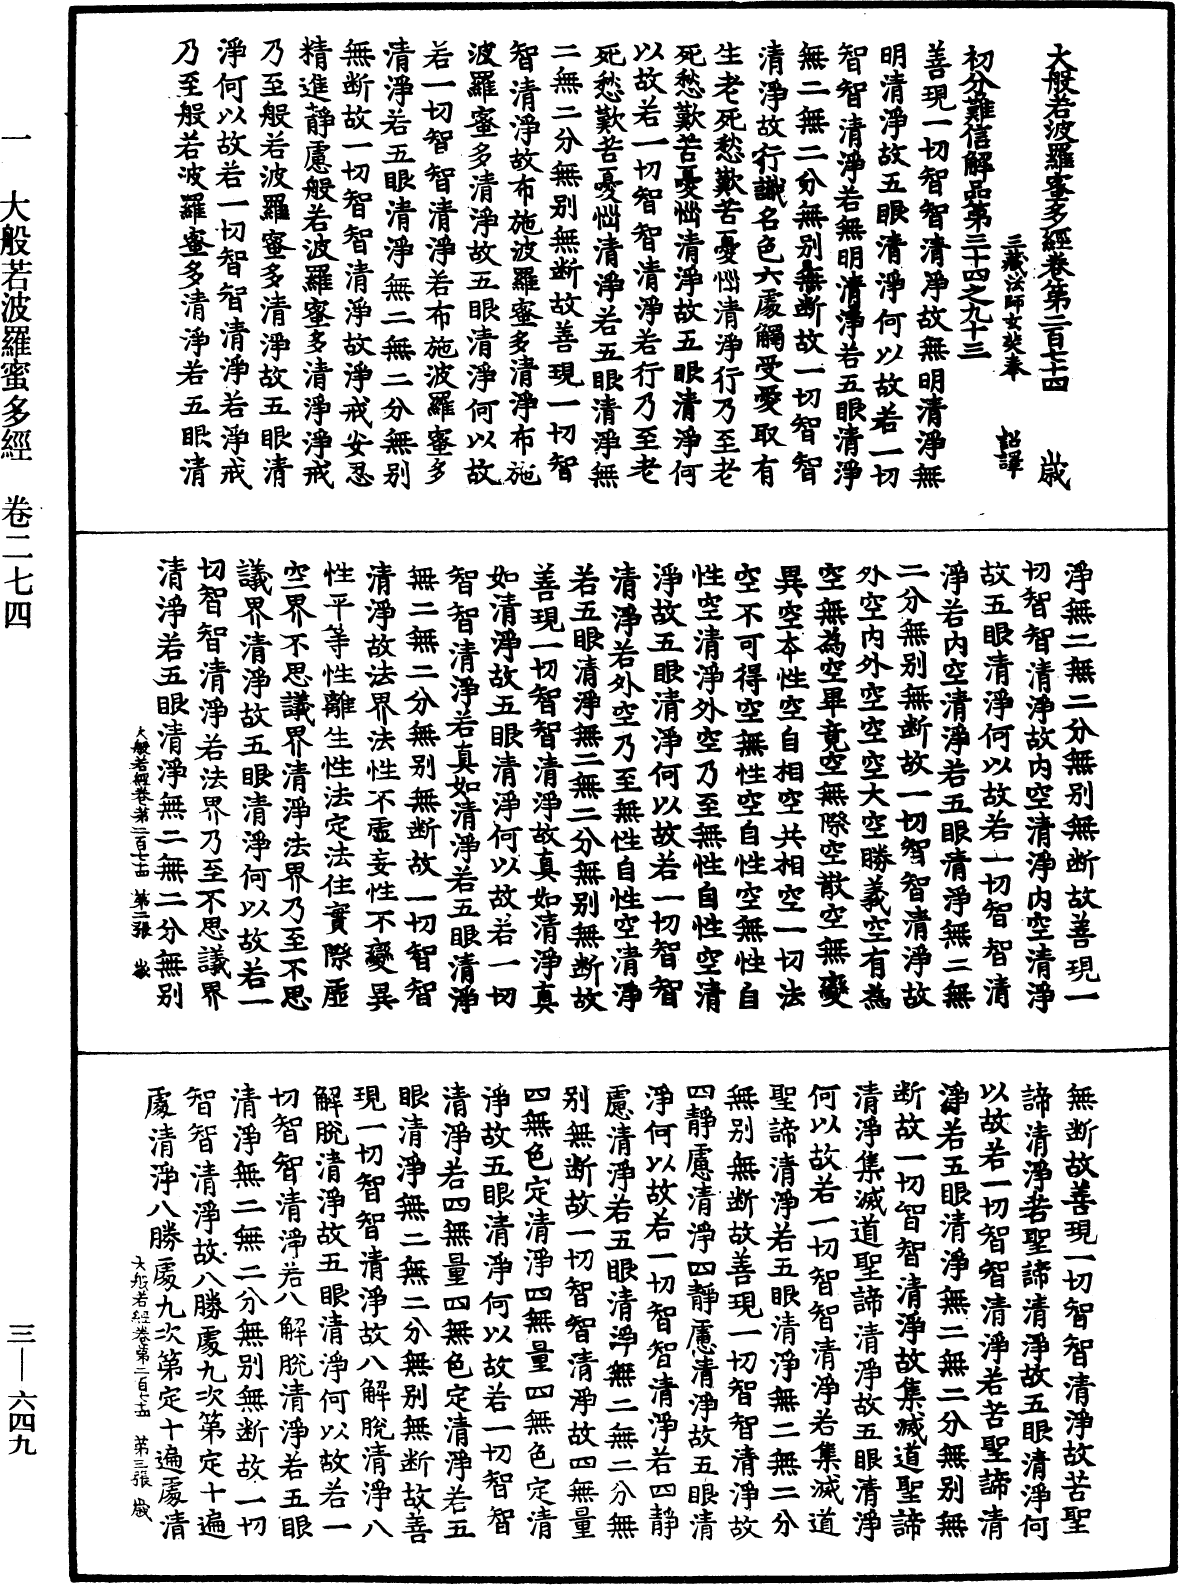 大般若波羅蜜多經卷第二百七十四 歲
三藏法師玄奘奉 詔譯
初分難信解品第三十四之九十三
善現一切智智清淨故無明清淨無
明清淨故五眼清淨何以故若一切
智智清淨若無明清淨若五眼清淨
無二無二分無別無斷故一切智智
清淨故行識名色六處觸受愛取有
生老死愁歎苦憂惱清淨行乃至老
死愁歎苦憂惱清淨故五眼清淨何
以故若一切智智清淨若行乃至老
死愁歎苦憂惱清淨若五眼清淨無
二無二分無別無斷故善現一切智
智清淨故布施波羅蜜多清淨布施
波羅蜜多清淨故五眼清淨何以故
若一切智智清淨若布施波羅蜜多
清淨若五眼清淨無二無二分無別
無斷故一切智智清淨故淨戒安忍
精進靜慮般若波羅蜜多清淨淨戒
乃至般若波羅蜜多清淨故五眼清
淨何以故若一切智智清淨若淨戒
乃至般若波羅蜜多清淨若五眼清
淨無二無二分無別無斷故善現一
切智智清淨故內空清淨內空清淨
故五眼清淨何以故若一切智智清
淨若內空清淨若五眼清淨無二無
二分無別無斷故一切智智清淨故
外空內外空空空大空勝義空有為
空無為空畢竟空無際空散空無變
異空本性空自相空共相空一切法
空不可得空無性空自性空無性自
性空清淨外空乃至無性自性空清
淨故五眼清淨何以故若一切智智
清淨若外空乃至無性自性空清淨
若五眼清淨無二無二分無別無斷故
善現一切智智清淨故真如清淨真
如清淨故五眼清淨何以故若一切
智智清淨若真如清淨若五眼清淨
無二無二分無別無斷故一切智智
清淨故法界法性不虛妄性不變異
性平等性離生性法定法住實際虛
空界不思議界清淨法界乃至不思
議界清淨故五眼清淨何以故若一
切智智清淨若法界乃至不思議界
清淨若五眼清淨無二無二分無別
大般若經卷第二百七十四 第二張 歲
無斷故善現一切智智清淨故苦聖
諦清淨苦聖諦清淨故五眼清淨何
以故若一切智智清淨若苦聖諦清
淨若五眼清淨無二無二分無別無
斷故一切智智清淨故集滅道聖諦
清淨集滅道聖諦清淨故五眼清淨
何以故若一切智智清淨若集滅道
聖諦清淨若五眼清淨無二無二分
無別無斷故善現一切智智清淨故
四靜慮清淨四靜慮清淨故五眼清
淨何以故若一切智智清淨若四靜
慮清淨若五眼清淨無二無二分無
別無斷故一切智智清淨故四無量
四無色定清淨四無量四無色定清
淨故五眼清淨何以故若一切智智
清淨若四無量四無色定清淨若五
眼清淨無二無二分無別無斷故善
現一切智智清淨故八解脫清淨八
解脫清淨故五眼清淨何以故若一
切智智清淨若八解脫清淨若五眼
清淨無二無二分無別無斷故一切
智智清淨故八勝處九次第定十遍
處清淨八勝處九次第定十遍處清
大般若經卷第二百七十四 第三張 歲
一 大般若波羅蜜多經 卷二七四
三—六四九